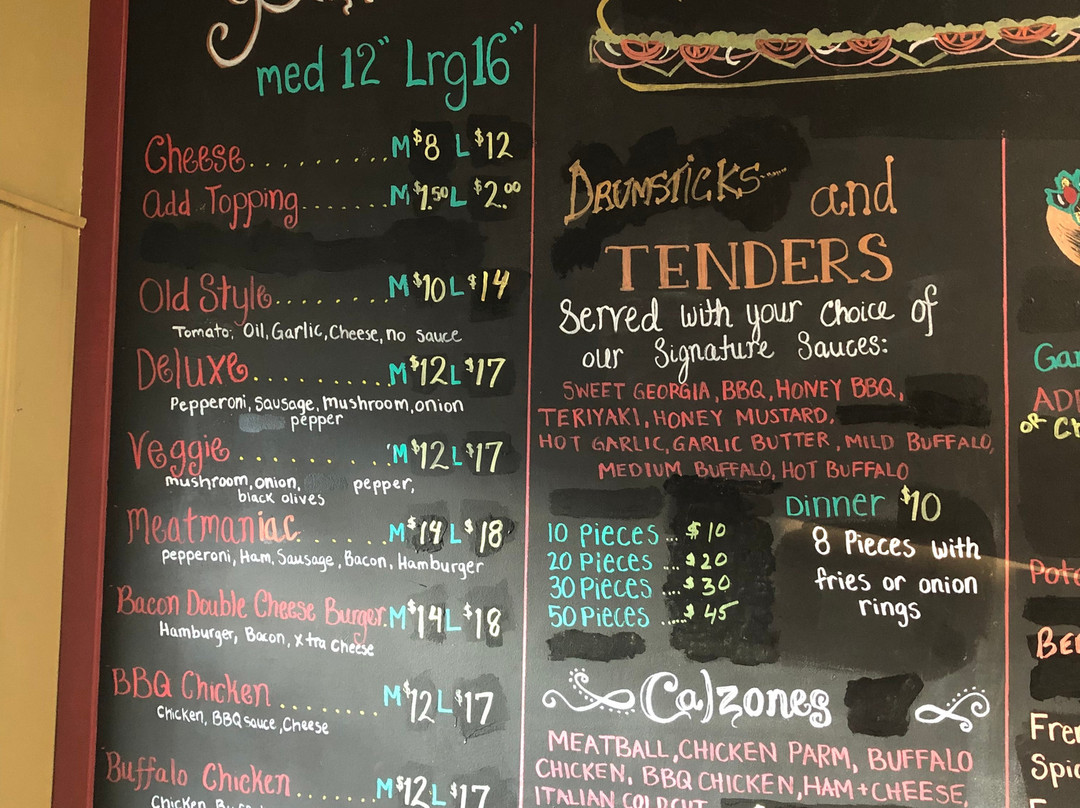 med 12" Lrg16"
Cheese..............M$8 L$12
Add Topping........M$1.50 L$2.00
Old Style.........M$10 L$14
Tomato, Oil, Garlic, Cheese, no sauce
Deluxe...........M$12 L$17
Pepperoni, Sausage, mushroom, onion
pepper
Veggie............M$12 L$17
mushroom, onion, pepper,
black olives
Meatmaniac........M$14 L$18
pepperoni, Ham, Sausage, Bacon, Hamburger
Bacon Double Cheese Burger.M$14 L$18
Hamburger, Bacon, xtra Cheese
BBQ Chicken.........M$12 L$17
Chicken, BBQ sauce, Cheese
Buffalo Chicken.......M$12 L$17
Chicken,
DRUMSTICKS..... and
TENDERS
Served with your choice of
our Signature Sauces:
SWEET GEORGIA, BBQ, HONEY BBQ,
TERIYAKI, HONEY MUSTARD,
HOT GARLIC, GARLIC BUTTER, MILD BUFFALO,
MEDIUM BUFFALO, HOT BUFFALO
10 Pieces... $10
20 Pieces .... $20
30 Pieces .... $30
50 Pieces ..... $45
Dinner $10
8 Pieces with
fries or onion
rings
Calzones
MEATBALL, CHICKEN PARM, BUFFALO
CHICKEN, BBQ CHICKEN, HAM+CHEESE
ITALIAN COLDCUT
or